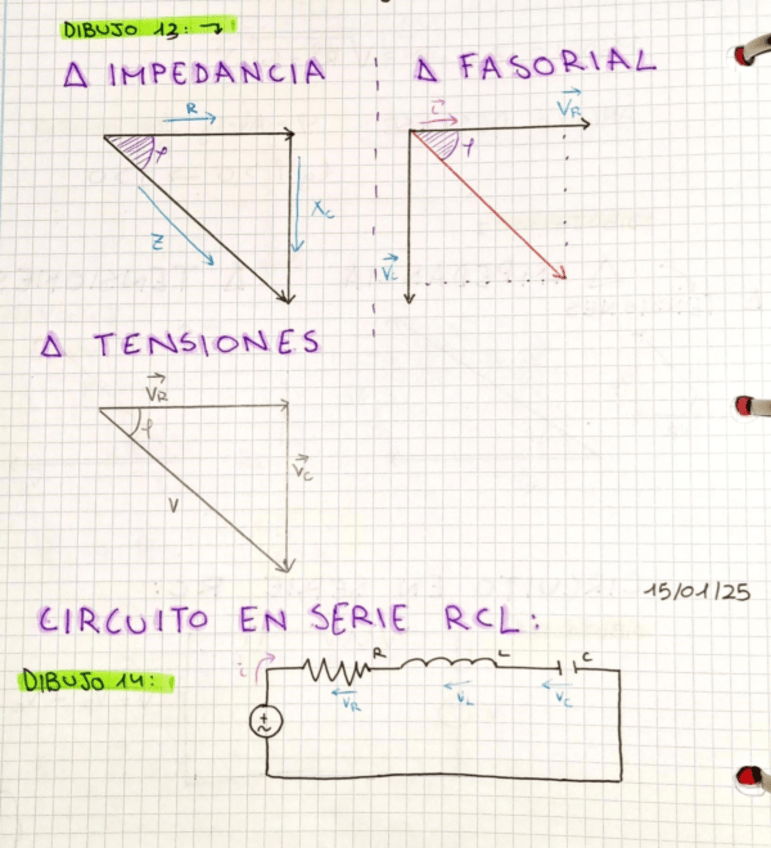 DIBUJO 13: →
Δ IMPEDANCIA
Δ FASORIAL
R
φ
Z
Xc
i
VR
φ
Vc
Δ TENSIONES
VR
φ
Vc
V
15/01/25
CIRCUITO EN SERIE RCL:
DIBUJO 14:
i
R
L
C
VR
VL
VC
+
~